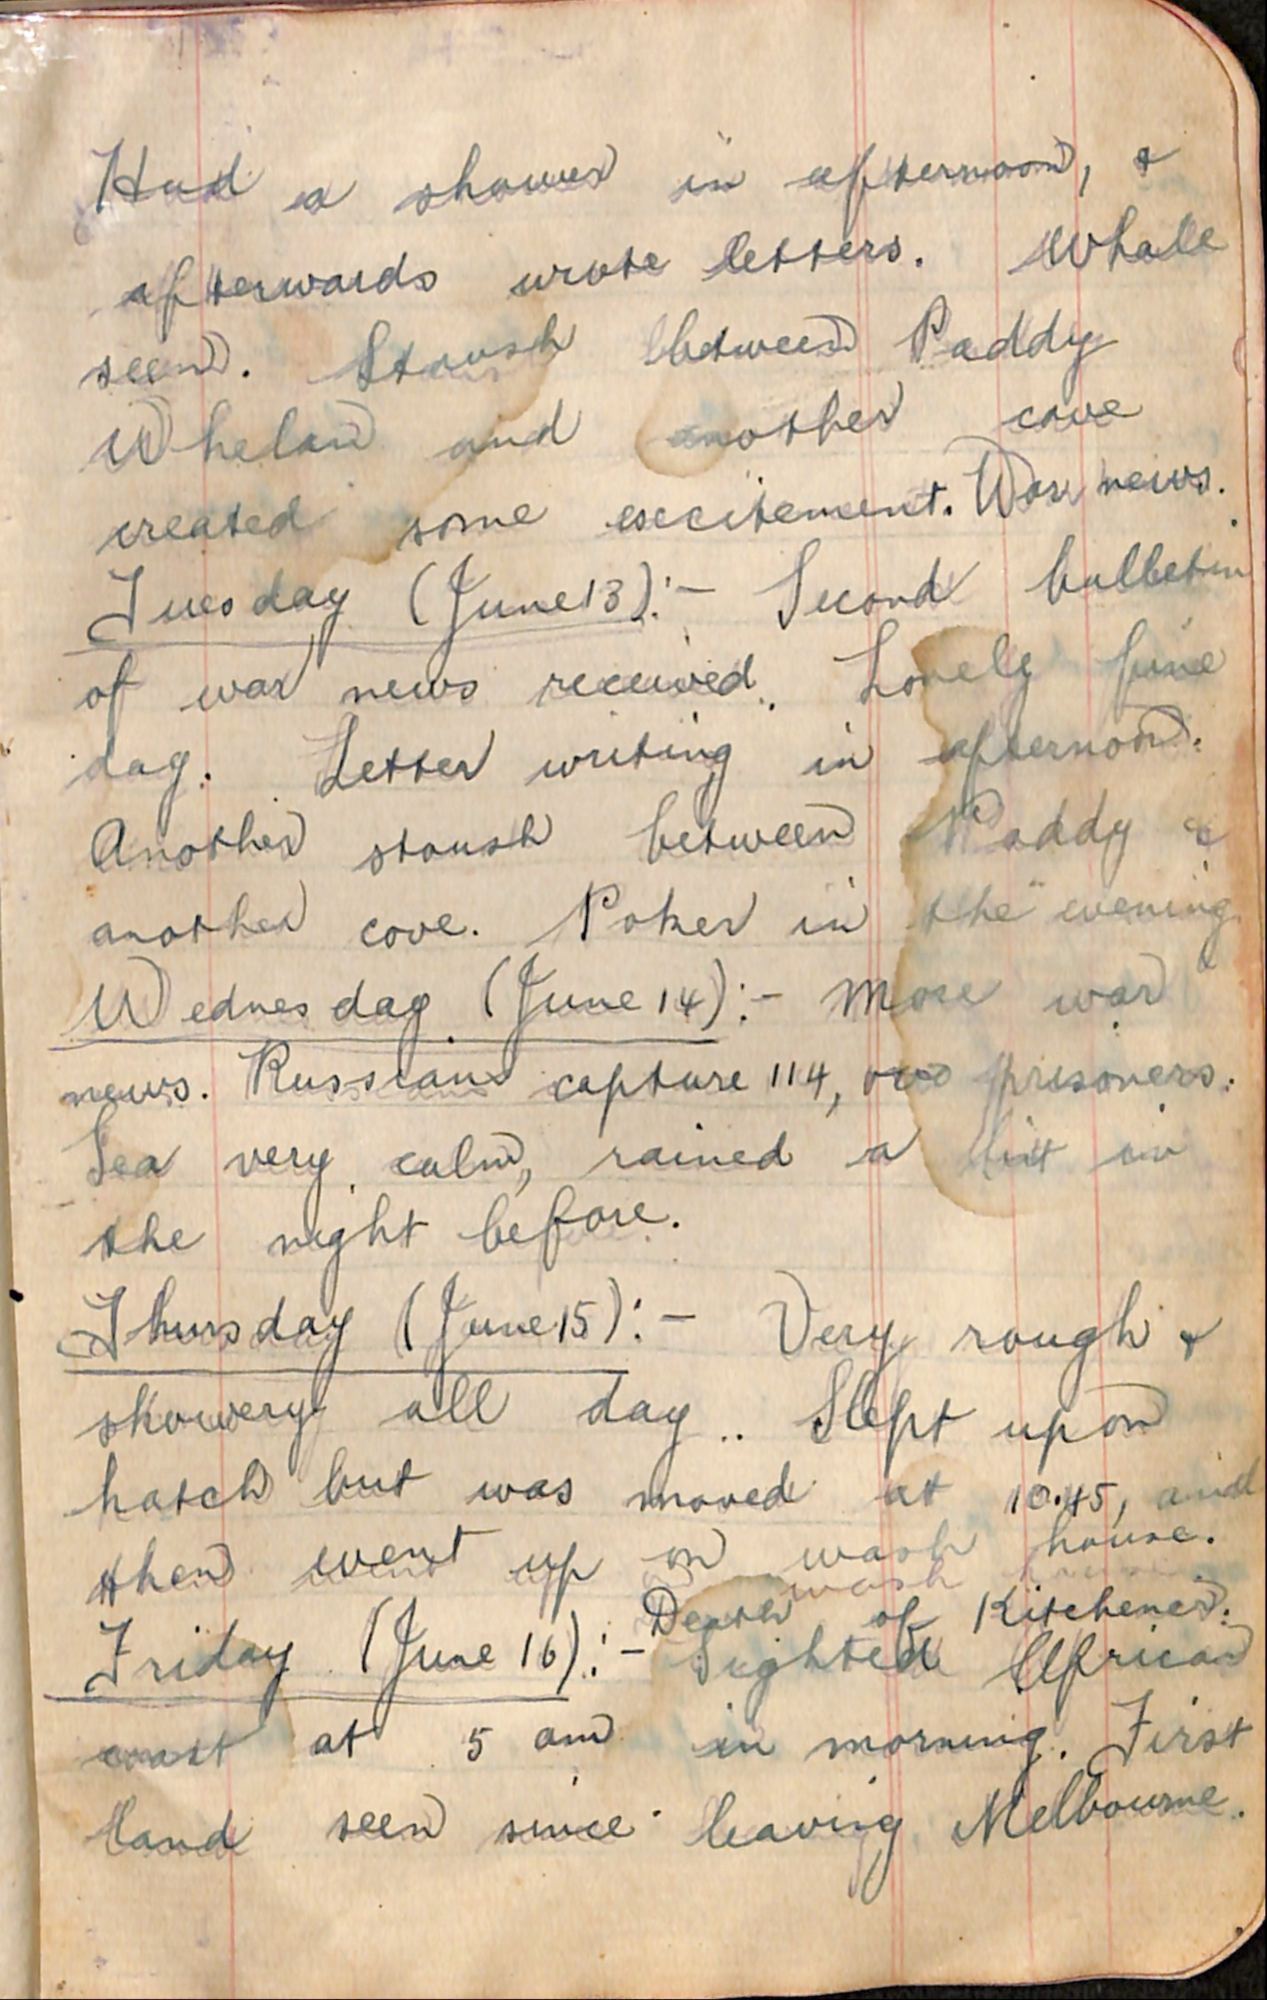 Had a shower in afternoon, &
afterwards wrote letters. Whale
seen. Stoush between Paddy
Whelan and another cove
created some excitement. War news.
Tuesday (June 13):- Second bulletin
of war news received. Lovely fine
day. Letter writing in afternoon.
Another stoush between Paddy &
another cove. Poker in the evening
Wednesday (June 14):- More war
news. Russians capture 114,000 prisoners.
Sea very calm, rained a bit in
the night before.
Thursday (June 15):- Very rough &
showery all day.. Slept upon
hatch but was moved at 10.45, and
then went up on wash house.
Death of Kitchener.
Friday (June 16):- Sighted African
coast at 5 am in morning. First
land seen since leaving Melbourne.